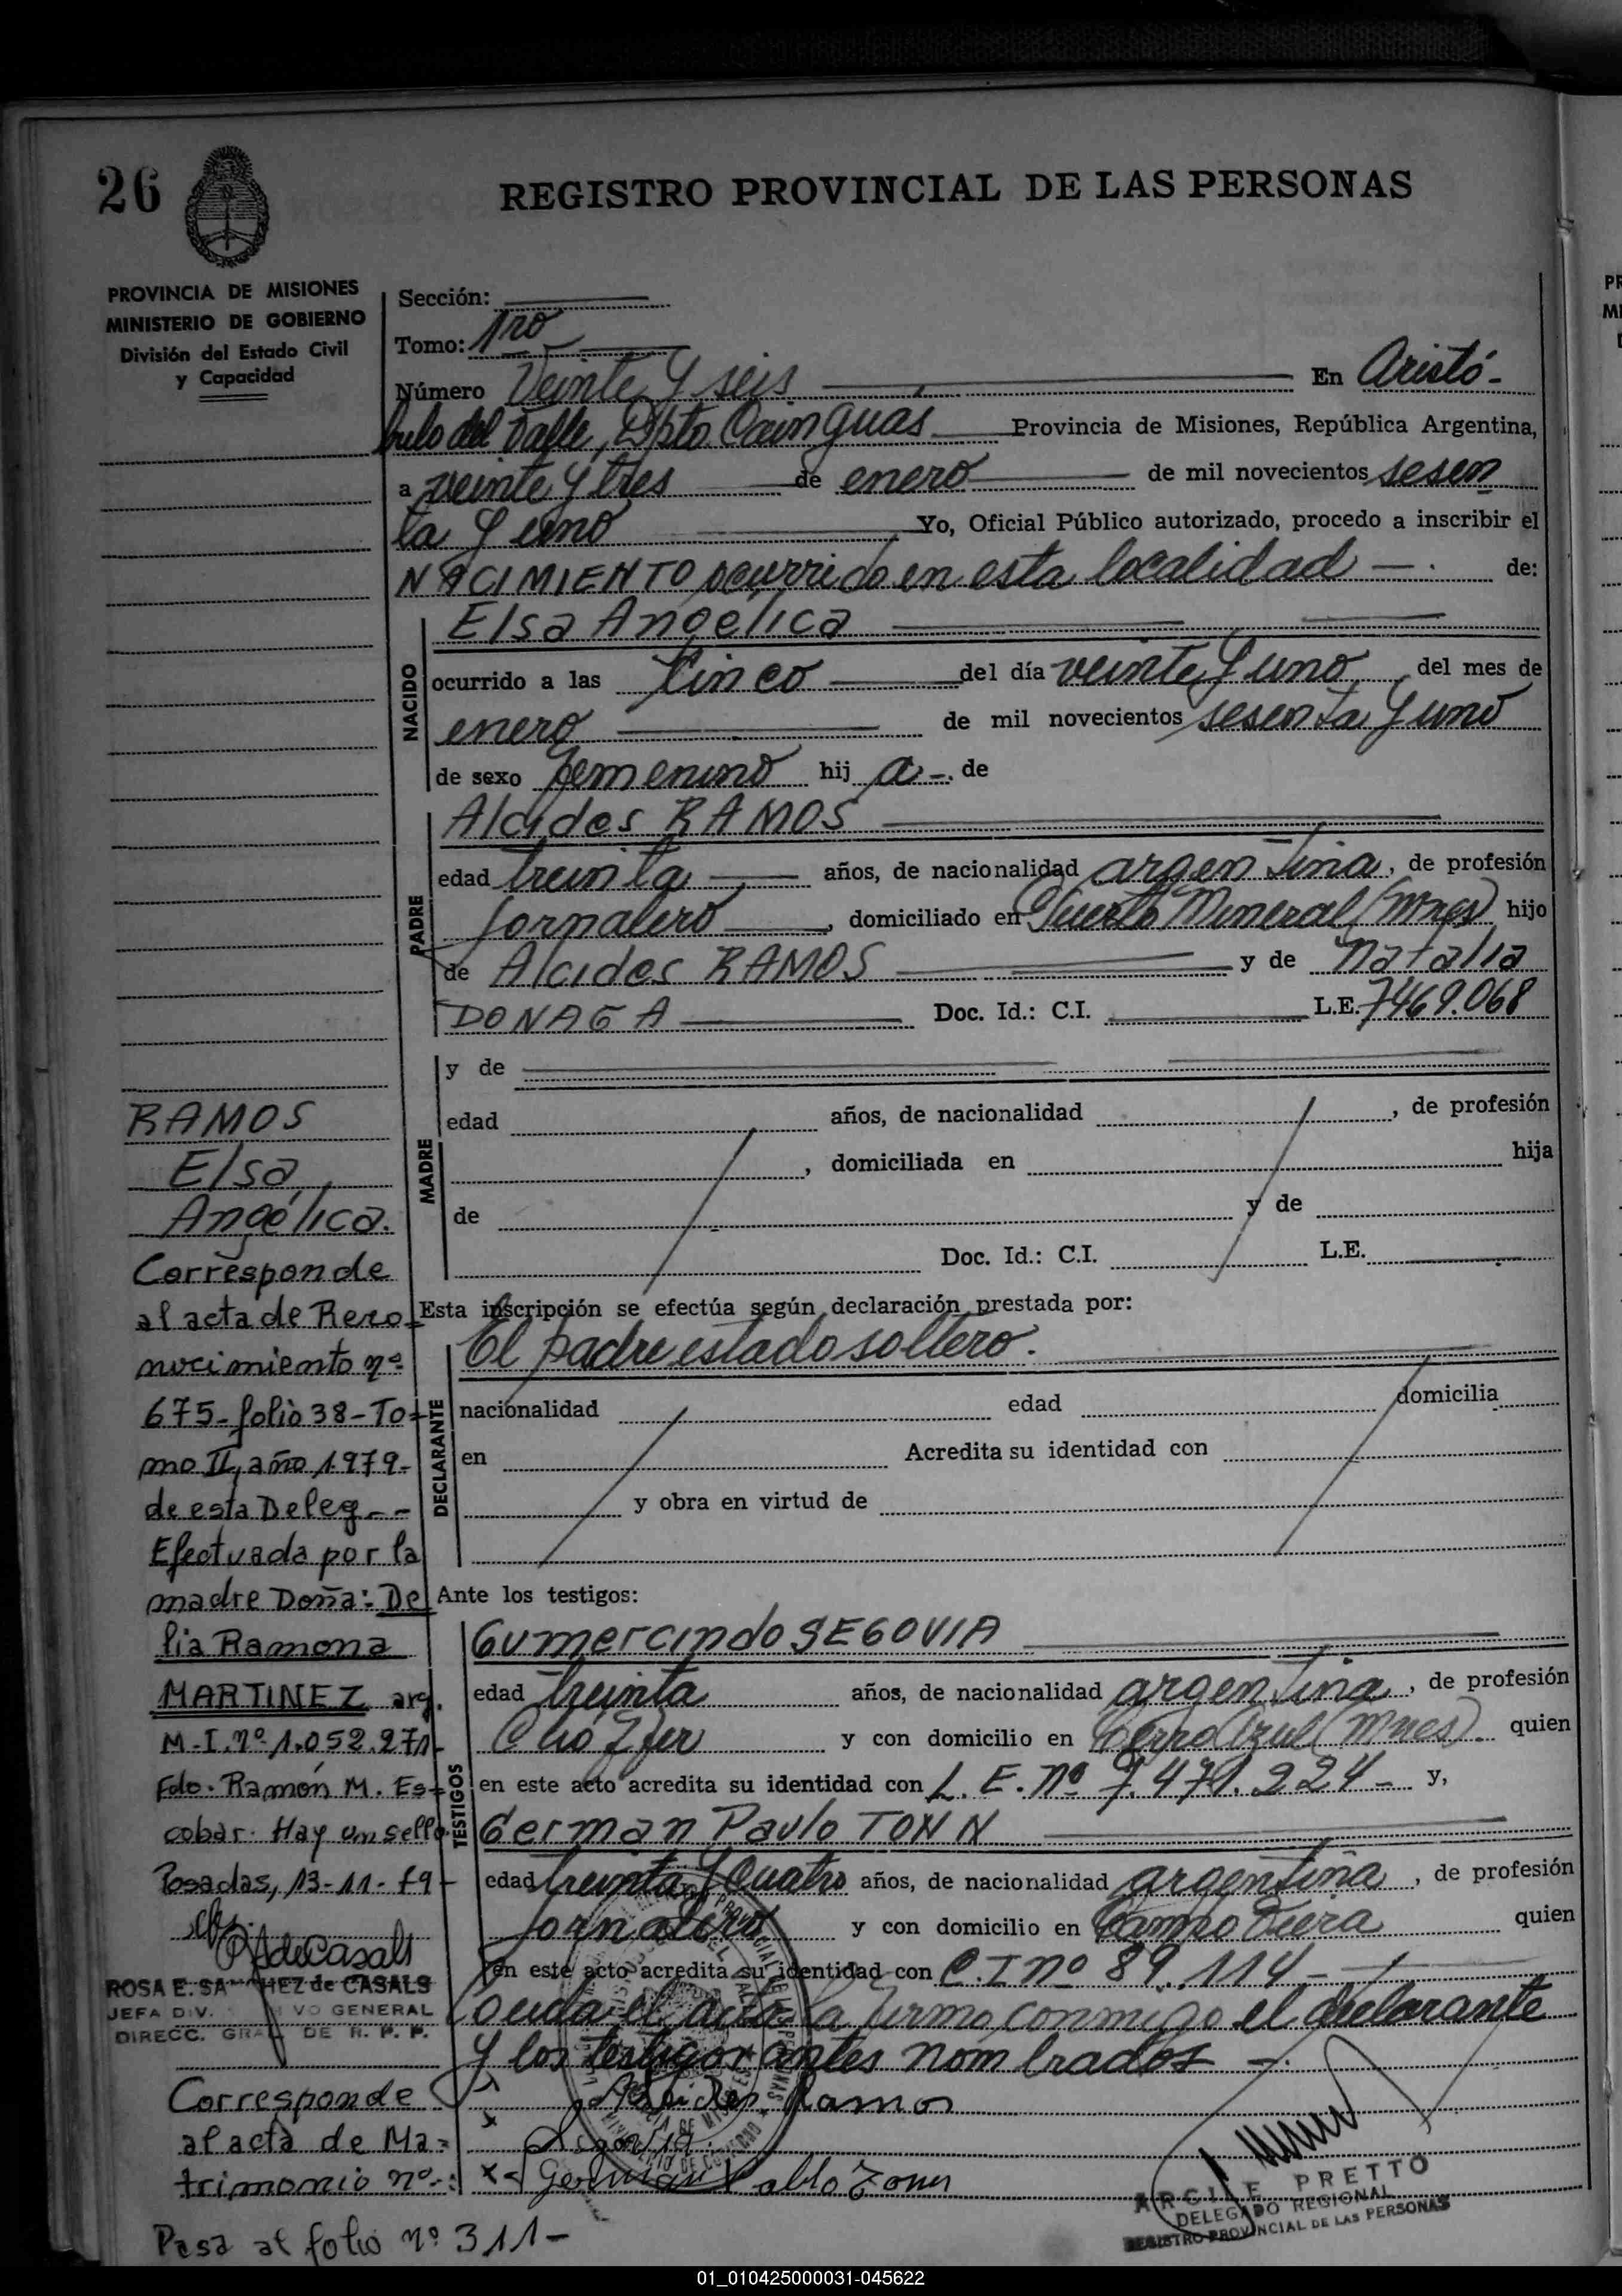 26
REGISTRO PROVINCIAL DE LAS PERSONAS
PROVINCIA DE MISIONES
MINISTERIO DE GOBIERNO
División del Estado Civil
y Capacidad
Sección:
Tomo: 1ro
Número Veinte y seis En Aristó-
bulo del Valle, Dpto Cainguás Provincia de Misiones, República Argentina,
a veinte y tres de enero de mil novecientos sesen
ta y uno Yo, Oficial Público autorizado, procedo a inscribir el
NACIMIENTO ocurrido en esta localidad de:
NACIDO
Elsa Angélica
ocurrido a las Cinco del día veinte y uno del mes de
enero de mil novecientos sesenta y uno
de sexo femenino hij a-. de
PADRE
Alcides RAMOS
edad treinta años, de nacionalidad argentina, de profesión
Jornalero, domiciliado en Puerto Mineral (Mnes) hijo
de Alcides RAMOS y de Natalia
DONAGA Doc. Id.: C.I. L.E. 7469.068
MADRE
y de
edad años, de nacionalidad , de profesión
, domiciliada en hija
de y de
Doc. Id.: C.I. L.E.
Esta inscripción se efectúa según declaración prestada por:
DECLARANTE
El padre estado soltero.
nacionalidad edad domicilia
en Acredita su identidad con
y obra en virtud de
Ante los testigos:
TESTIGOS
Gumercindo SEGOVIA
edad treinta años, de nacionalidad argentina, de profesión
Chófer y con domicilio en Cerro Azul (Mnes). quien
en este acto acredita su identidad con L. E. nº 7.471.224- y,
German Paulo TONN
edad treinta y Cuatro años, de nacionalidad argentina, de profesión
Jornalero y con domicilio en Campo Viera quien
en este acto acredita su identidad con C. I nº 89.114-
Leída el acta la firma conmigo el declarante
y los testigos antes nombrados-.
x Alcides Ramos
x Segovia
x German Pablo Tonn
ARGILE PRETTO
DELEGADO REGIONAL
REGISTRO PROVINCIAL DE LAS PERSONAS
RAMOS
Elsa
Angélica.
Corresponde
al acta de Reco-
nocimiento nº
675-folio 38-To-
mo II, año 1979-
de esta Deleg.--
Efectuada por la
madre Doña: De
lia Ramona
MARTINEZ arg.
M.I. nº 1.052.271-
Fdo. Ramón M. Es-
cobar. Hay un sello.
Posadas, 13-11-79-
ROSA E. SANCHEZ de CASALS
JEFA DIV. GENERAL
DIRECC. GRAL DE R. P. P.
Corresponde
al acta de Ma-
trimonio nº:
Pasa al folio nº 311-
01_010425000031-045622